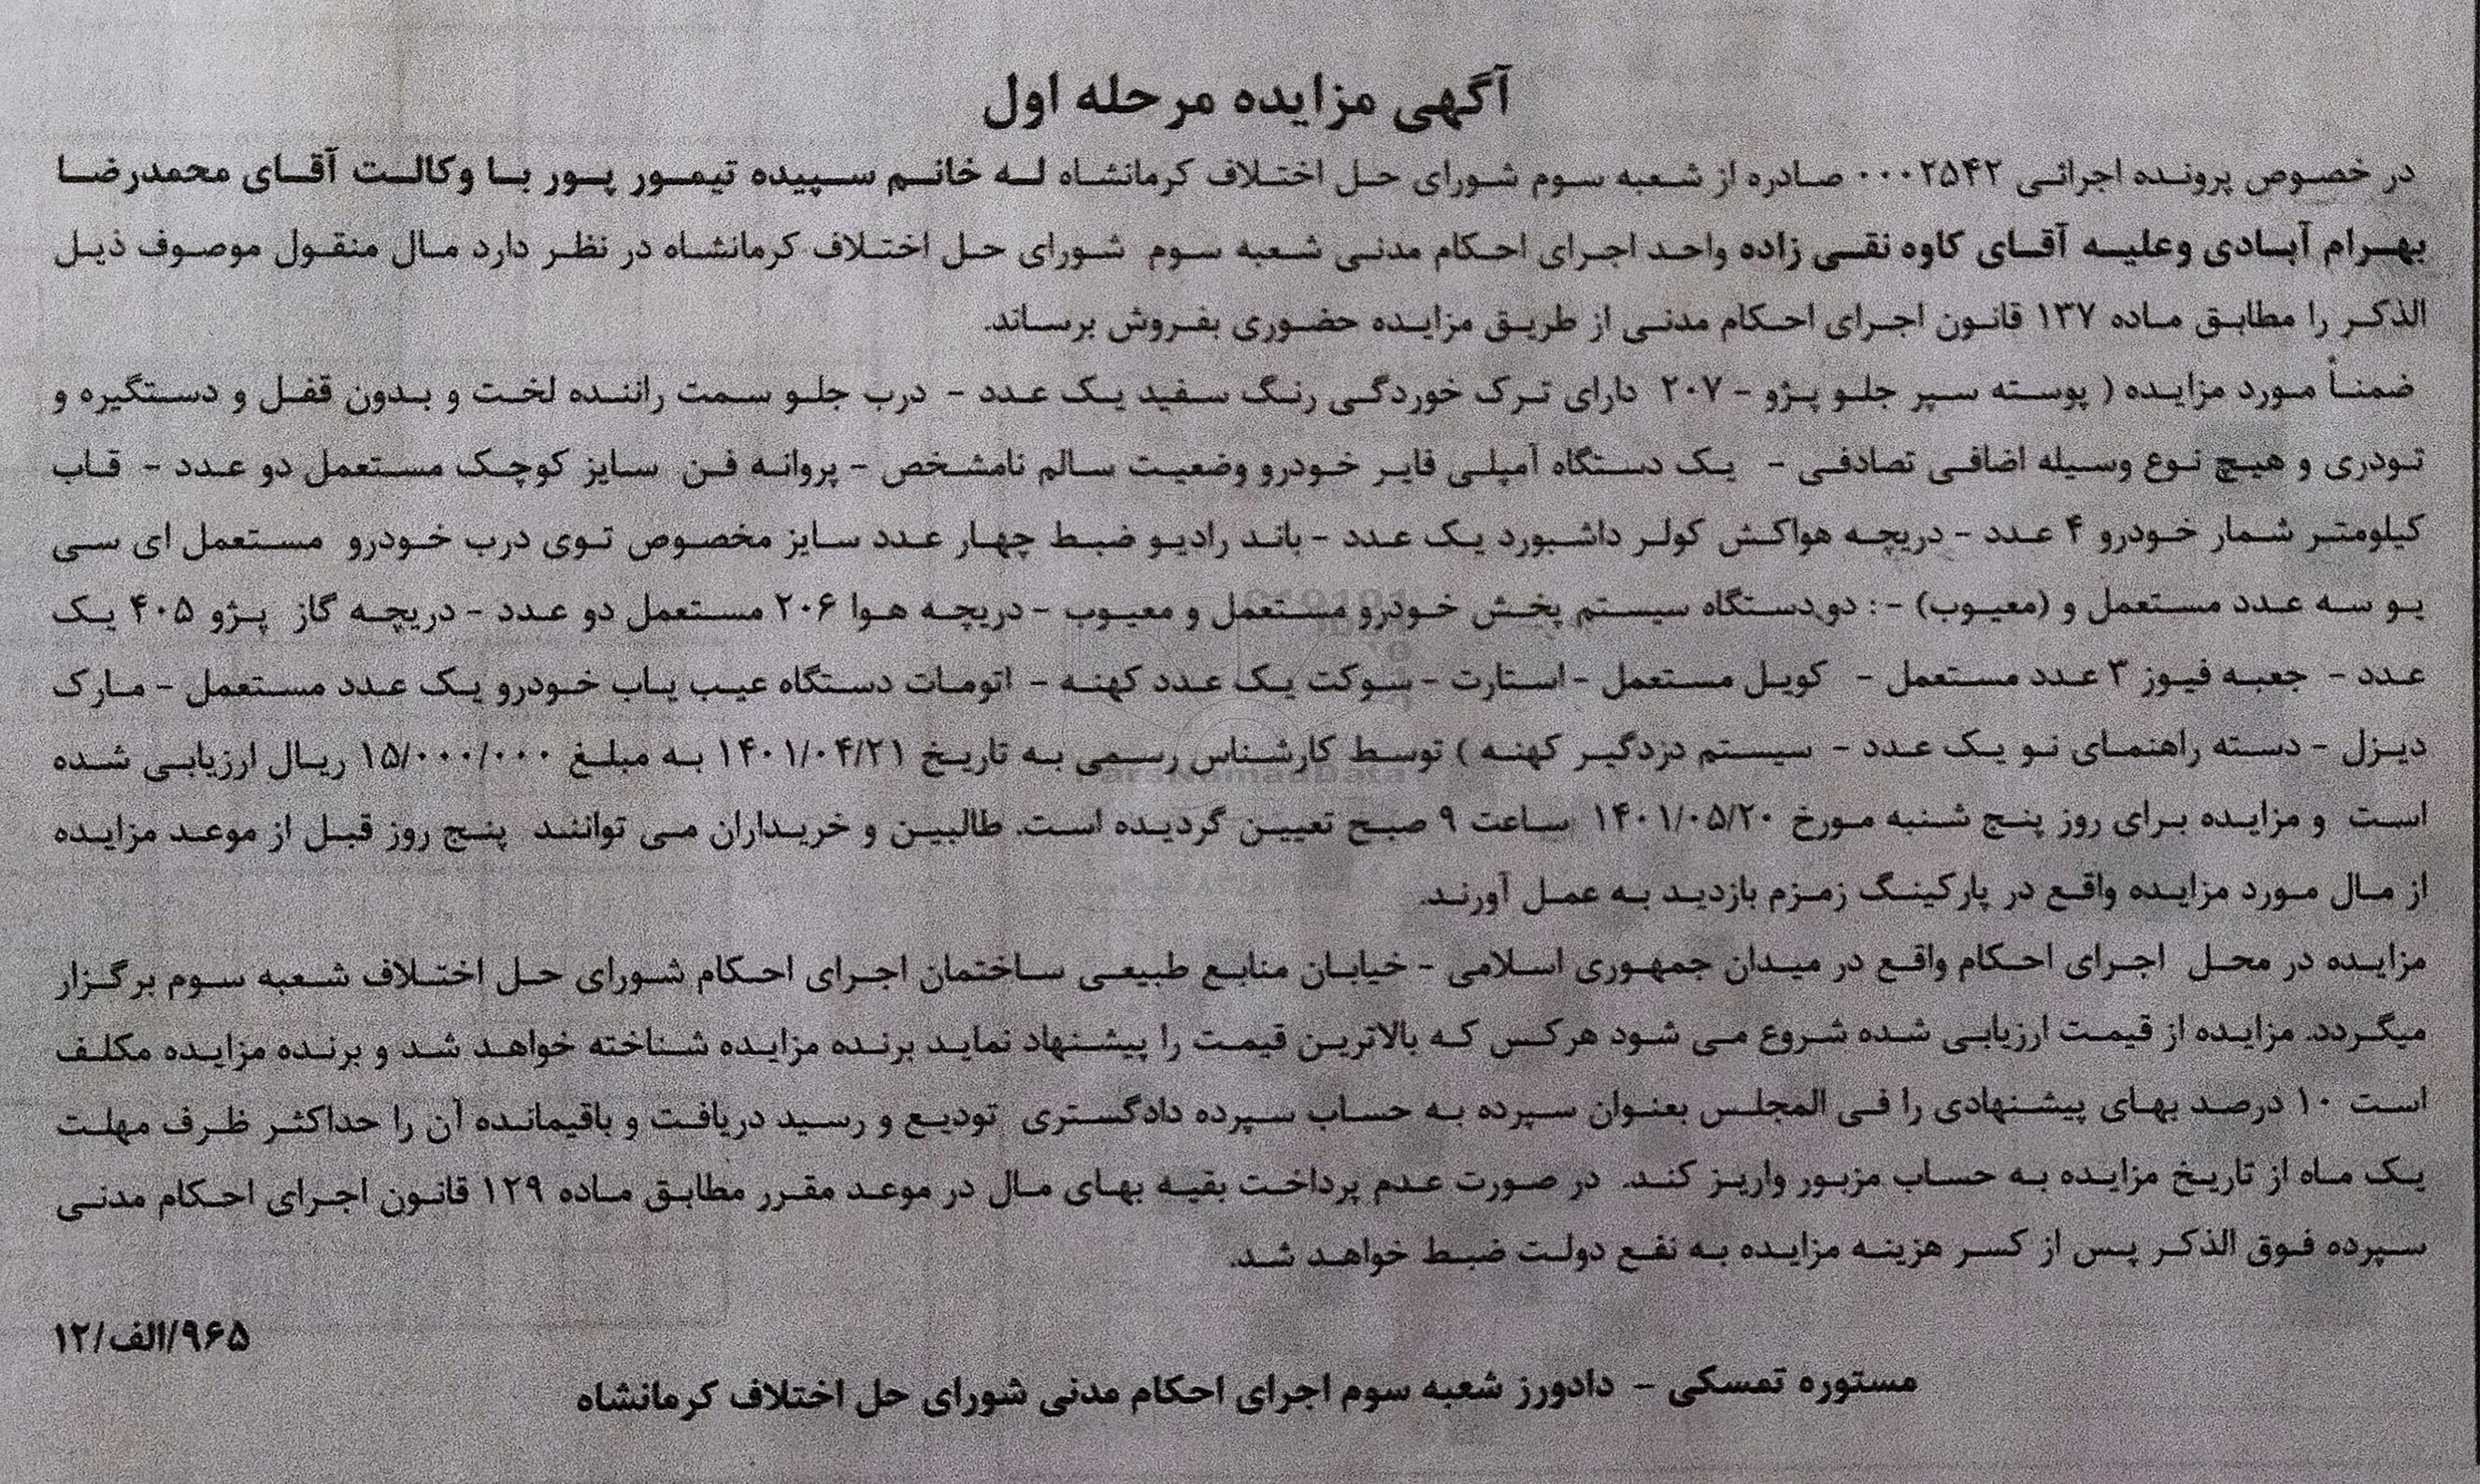 آگهی مزایده مرحله اول
در خصوص پرونده اجرائی ۰۰۰۲۵۴۲ صادره از شعبه سوم شورای حل اختلاف کرمانشاه له خانم سپیده تیمور پور با وکالت آقای محمدرضا
بهرام آبادی وعلیه آقای کاوه نقی زاده واحد اجرای احکام مدنی شعبه سوم شورای حل اختلاف کرمانشاه در نظر دارد مال منقول موصوف ذیل
الذکر را مطابق ماده ۱۳۷ قانون اجرای احکام مدنی از طریق مزایده حضوری بفروش برساند.
ضمناً مورد مزایده ( پوسته سپر جلو پژو - ۲۰۷ دارای ترک خوردگی رنگ سفید یک عدد - درب جلو سمت راننده لخت و بدون قفل و دستگیره و
تودری و هیچ نوع وسیله اضافی تصادفی - یک دستگاه آمپلی فایر خودرو وضعیت سالم نامشخص - پروانه فن سایز کوچک مستعمل دو عدد - قاب
کیلومتر شمار خودرو ۴ عدد - دریچه هواکش کولر داشبورد یک عدد - باند رادیو ضبط چهار عدد سایز مخصوص توی درب خودرو مستعمل ای سی
یو سه عدد مستعمل و (معیوب) -: دو دستگاه سیستم پخش خودرو مستعمل و معیوب - دریچه هوا ۲۰۶ مستعمل دو عدد - دریچه گاز پژو ۴۰۵ یک
عدد - جعبه فیوز ۳ عدد مستعمل - کویل مستعمل - استارت - سوکت یک عدد کهنه - اتومات دستگاه عیب یاب خودرو یک عدد مستعمل - مارک
دیزل - دسته راهنمای نو یک عدد - سیستم دزدگیر کهنه ) توسط کارشناس رسمی به تاریخ ۱۴۰۱/۰۴/۲۱ به مبلغ ۱۵/۰۰۰/۰۰۰ ریال ارزیابی شده
است و مزایده برای روز پنج شنبه مورخ ۱۴۰۱/۰۵/۲۰ ساعت ۹ صبح تعیین گردیده است. طالبین و خریداران می توانند پنج روز قبل از موعد مزایده
از مال مورد مزایده واقع در پارکینگ زمزم بازدید به عمل آورند.
مزایده در محل اجرای احکام واقع در میدان جمهوری اسلامی - خیابان منابع طبیعی ساختمان اجرای احکام شورای حل اختلاف شعبه سوم برگزار
میگردد. مزایده از قیمت ارزیابی شده شروع می شود هرکس که بالاترین قیمت را پیشنهاد نماید برنده مزایده شناخته خواهد شد و برنده مزایده مکلف
است ۱۰ درصد بهای پیشنهادی را فی المجلس بعنوان سپرده به حساب سپرده دادگستری تودیع و رسید دریافت و باقیمانده آن را حداکثر ظرف مهلت
یک ماه از تاریخ مزایده به حساب مزبور واریز کند. در صورت عدم پرداخت بقیه بهای مال در موعد مقرر مطابق ماده ۱۲۹ قانون اجرای احکام مدنی
سپرده فوق الذکر پس از کسر هزینه مزایده به نفع دولت ضبط خواهد شد.
۹۶۵/الف/۱۲
مستوره تمسکی - دادورز شعبه سوم اجرای احکام مدنی شورای حل اختلاف کرمانشاه